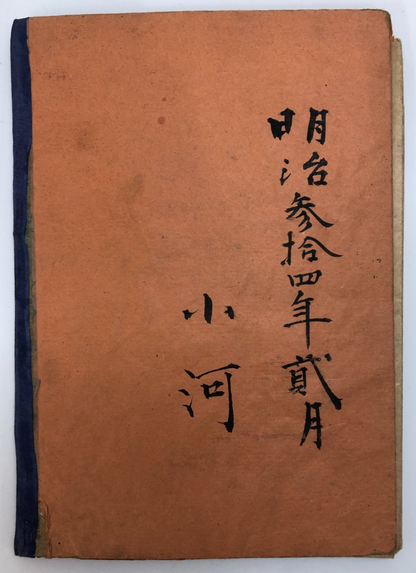 明治参拾四年貳月
小河